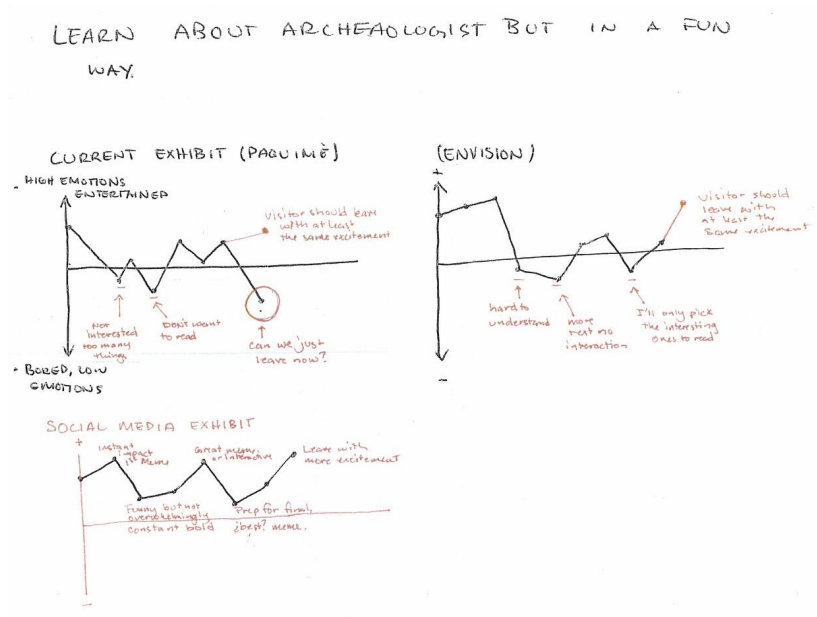 LEARN ABOUT ARCHEAOLOGIST BUT IN A FUN
WAY.
CURRENT EXHIBIT (PAQUIMÈ)
- HIGH EMOTIONS
ENTERTAINED
Visitor should leave
with at least
the same excitement
Not
interested
too many
things
Don't want
to read
Can we just
leave now?
• BORED, LOW
EMOTIONS
(ENVISION)
+
Visitor should
leave with
at least the
same excitement
hard to
understand
more
text no
interaction
I'll only pick
the interesting
ones to read
-
SOCIAL MEDIA EXHIBIT
+
instant
impact
1st Meme
Great meme,
or interactive
Leave with
more excitement
Funny but not
overwhelmingly
constant bold
Prep for final,
¿best? meme.
-